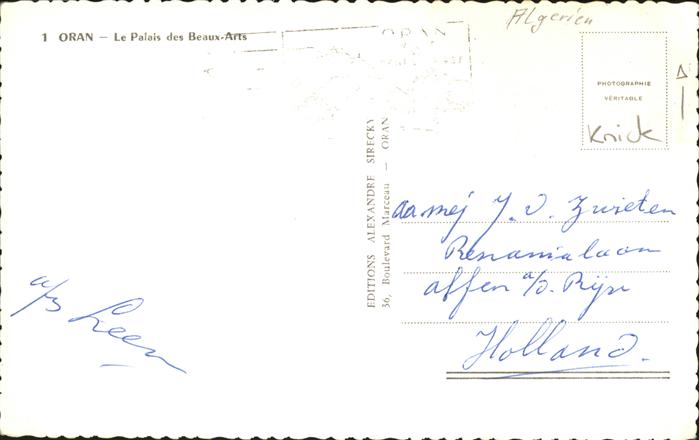 Algerien
1 ORAN — Le Palais des Beaux-Arts
ORAN
PHOTOGRAPHIE
VÉRITABLE
Knick
EDITIONS ALEXANDRE SIRECKY
36, Boulevard Marceau — ORAN
aa mej J. v. Zwieten
Renanialaan
alfen a/d. Rijn
Holland.
a/b Leen